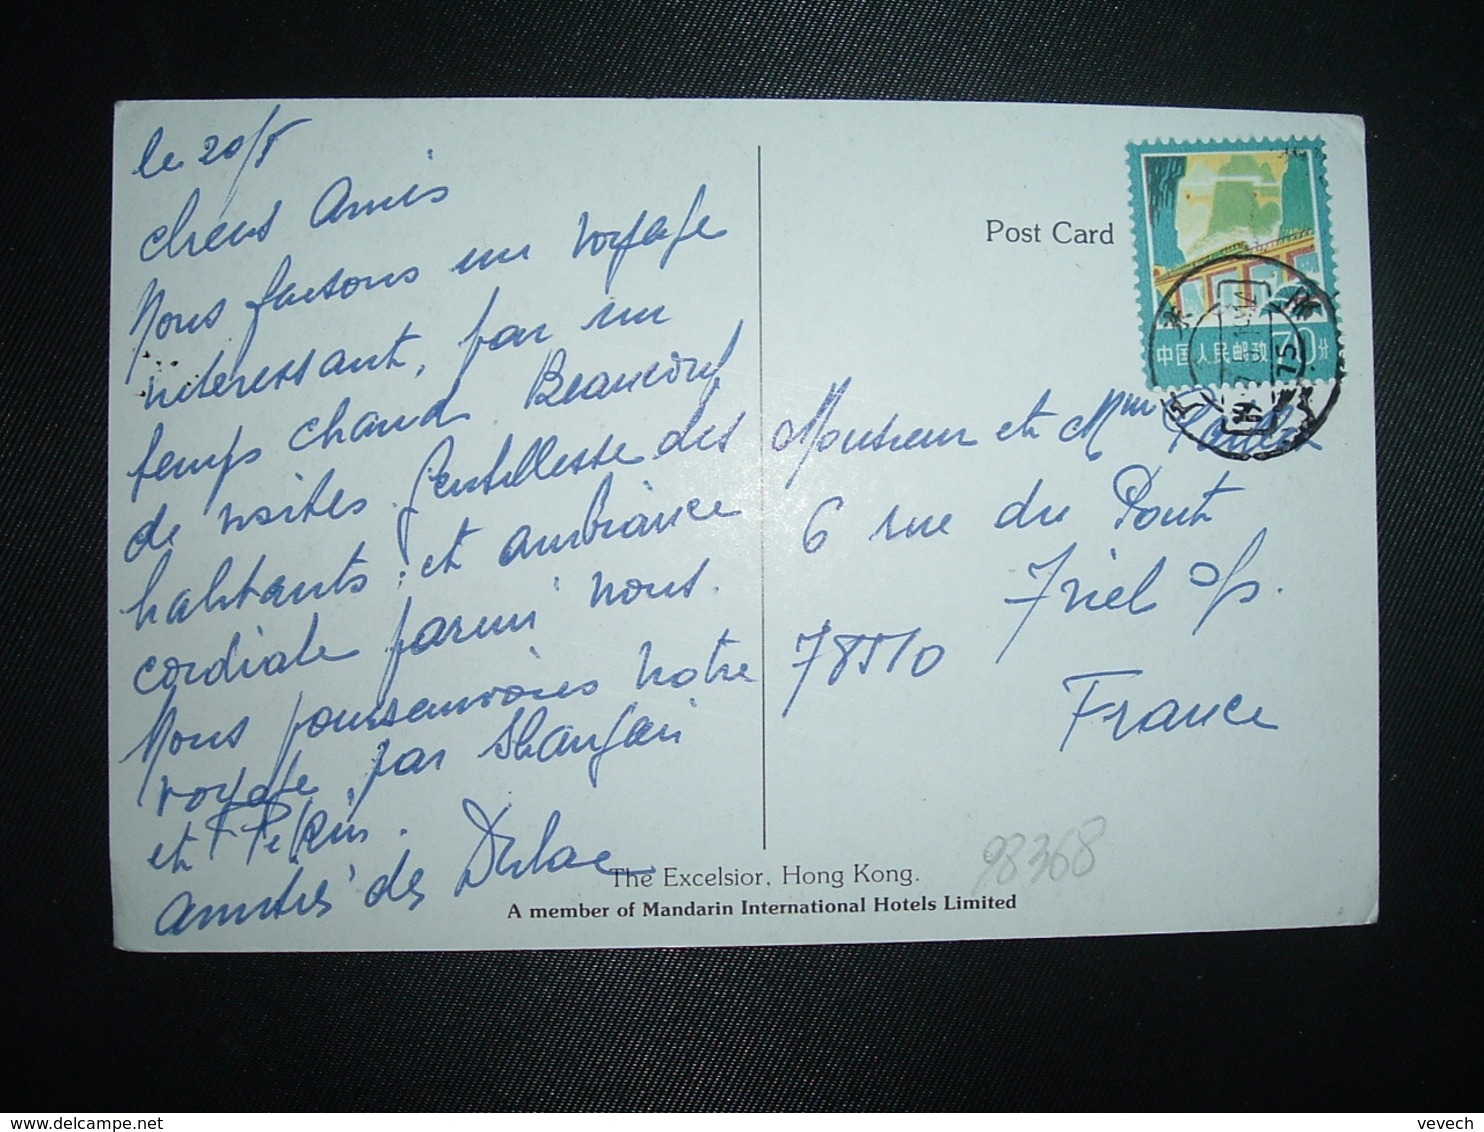 le 20/8
chers Amis
Nous faisons un voyage
interessant, par un
temps chaud Beaucoup
de visites. Gentillesse des
habitants et ambiance
cordiale parmi nous.
Nous poursuivrons notre
voyage par Shangai
et Pekin.
amitiés des Dulac
Post Card
中国人民邮政 70分
Monsieur et Mme
6 rue du Pont
Triel s/s.
78510
France
98368
The Excelsior, Hong Kong.
A member of Mandarin International Hotels Limited
vevech